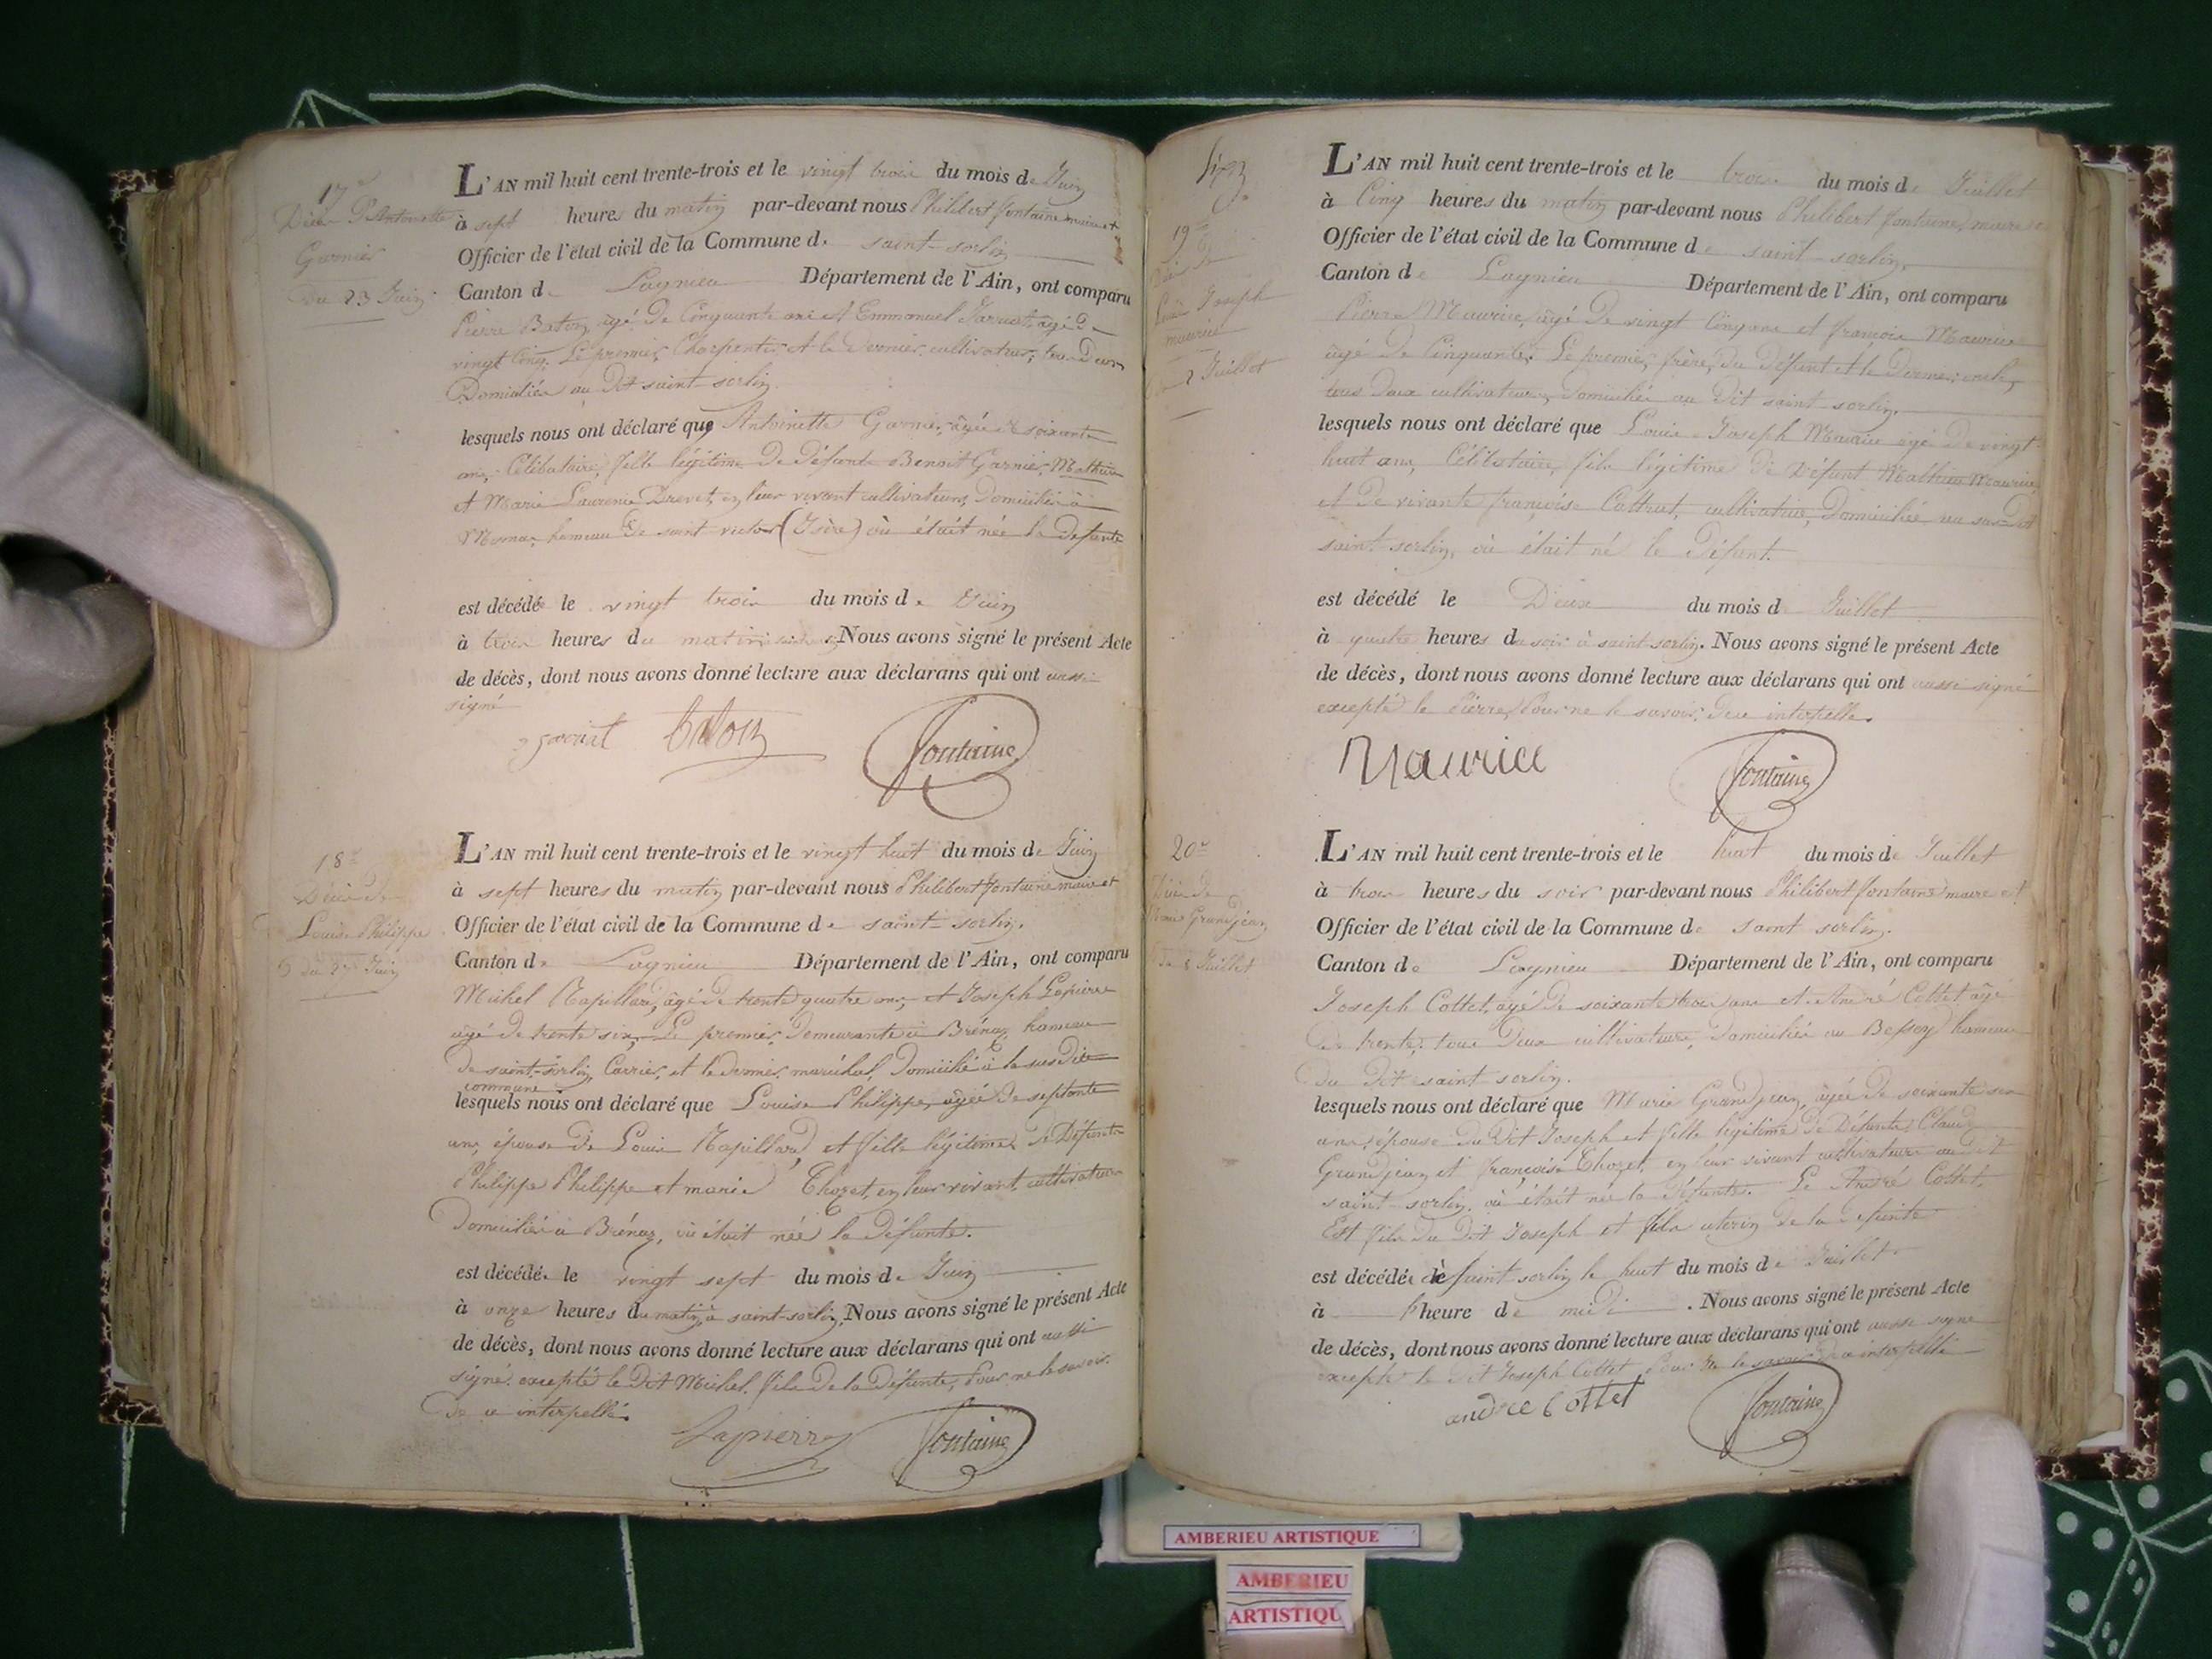 17e
Décès d'Antoinette
Garnier
du 23 Juin
L'AN mil huit cent trente-trois et le vingt trois du mois de Juin
à sept heures du matin par-devant nous Philibert fontaine maire et
Officier de l'état civil de la Commune de saint-sorlin
Canton de Lagnieu Département de l'Ain, ont comparu
Pierre Baton, âgé de Cinquante ans et Emmanuel âgé de
vingt Cinq, Le premier Charpentier et le Dernier cultivateur, tous Deux
Domiciliés au Dit saint-sorlin.
lesquels nous ont déclaré que Antoinette Garnier, âgée de soixante
ans, Célibataire, fille légitime De Défunts Benoit Garnier, Mathieu
et Marie Laurence en leur vivant cultivateurs, Domiciliés à
hameau De saint victor (Isère) où était née la defunte
est décédée le vingt trois du mois de Juin
à trois heures du matin Nous avons signé le présent Acte
de décès, dont nous avons donné lecture aux déclarans qui ont aussi
signé
Baton fontaine
18e
Décès de
Louise Philippe
du 27 Juin
L'AN mil huit cent trente-trois et le vingt huit du mois de Juin
à sept heures du matin par-devant nous Philibert fontaine maire et
Officier de l'état civil de la Commune de saint-sorlin.
Canton de Lagnieu Département de l'Ain, ont comparu
Michel Rapillard, âgé de trente quatre ans, et Joseph Lapierre
âgé de trente six, Le premier, Demeurante à Brénaz hameau
De saint-sorlin, Carrier, et le dernier, maréchal, Domicilié à la susdite
commune.
lesquels nous ont déclaré que Louise Philippe, âgée de septante
ans, épouse de Louis Rapillard, et fille légitime de Défunts
Philippe Philippe et marie Thozet, en leur vivant, cultivateurs
Domiciliés à Brénaz, où était née la Défunte.
est décédée le vingt sept du mois de Juin
à onze heures du matin à saint-sorlin. Nous avons signé le présent Acte
de décès, dont nous avons donné lecture aux déclarans qui ont aussi
signé excepté le Dit Michel, fils De la Défunte, Pour ne le savoir.
De ce interpellé.
Lapierre fontaine
19e
Décès de
Louis Joseph
maurice
du 2 Juillet
L'AN mil huit cent trente-trois et le trois du mois de Juillet
à Cinq heures du matin par-devant nous Philibert fontaine, maire et
Officier de l'état civil de la Commune de saint-sorlin,
Canton de Lagnieu Département de l'Ain, ont comparu
Pierre Maurice, âgé De vingt Cinq ans et françois Maurice
âgé de Cinquante. Le premier, frère, du Défunt et le Dernier, oncle,
tous Deux cultivateurs, Domiciliés au Dit saint sorlin,
lesquels nous ont déclaré que Louis Joseph Maurice agé De vingt
huit ans, Célibataire, fils légitime De Défunt Mathieu Maurice,
et De vivante françoise Cottrat, cultivatrice, Domiciliée au susdit
saint-sorlin, où était né le Défunt.
est décédé le Deux du mois de Juillet
à quatre heures du soir à saint-sorlin. Nous avons signé le présent Acte
de décès, dont nous avons donné lecture aux déclarans qui ont aussi signé
excepté le Pierre, Pour ne le savoir, De ce interpellé.
Maurice fontaine
20e
Décès de
Marie Grandjean
Du 8 Juillet
L'AN mil huit cent trente-trois et le huit du mois de Juillet
à trois heures du soir par-devant nous Philibert fontaine maire et
Officier de l'état civil de la Commune de saint sorlin.
Canton de Lagnieu Département de l'Ain, ont comparu
Joseph Cottet, agé De soixante trois ans et André Cottet âgé
De trente, tous Deux cultivateurs, Domiciliés au Bessey hameau
Du Dit saint sorlin.
lesquels nous ont déclaré que Marie Grandjean, âgée De soixante
ans, épouse Du Dit Joseph et fille légitime De Défunts Claude
Grandjean et françoise Thozet, en leur vivant cultivateurs au dit
saint-sorlin, où était née la Défunte. Le André Cottet,
Est fils Du Dit Joseph et fils uterin De la Defunte
est décédée à saint sorlin le huit du mois de Juillet
à l'heure de midi. Nous avons signé le présent Acte
de décès, dont nous avons donné lecture aux déclarans qui ont aussi signé
excepté le Dit Joseph Cottet pour ne le savoir De ce interpellé
andré Cottet fontaine
AMBERIEU ARTISTIQUE
AMBERIEU
ARTISTIQU